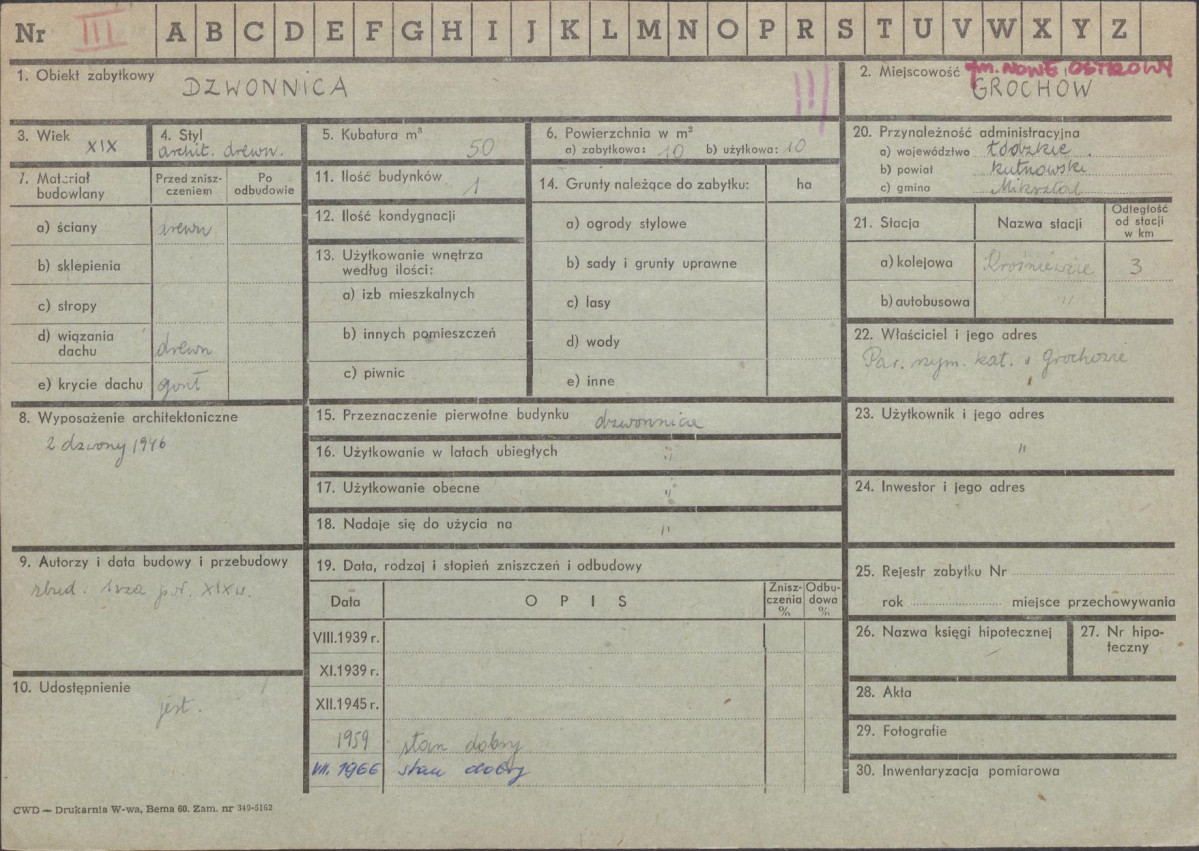 Nr III A B C D E F G H I J K L M N O P R S T U V W X Y Z
1. Obiekt zabytkowy
DZWONNICA
III
2. Miejscowość gm. NOWE OSTROWY
GROCHÓW
3. Wiek XIX
4. Styl
archit. drewn.
5. Kubatura m³ 50
6. Powierzchnia w m²
a) zabytkowa: 10 b) użytkowa: 10
20. Przynależność administracyjna
a) województwo Łódzkie
b) powiat kutnowski
c) gmina Mikształ
7. Materiał budowlany
Przed zniszczeniem
Po odbudowie
a) ściany drewn
b) sklepienia
c) stropy
d) wiązania dachu drewn
e) krycie dachu gont
11. Ilość budynków 1
12. Ilość kondygnacji
13. Użytkowanie wnętrza według ilości:
a) izb mieszkalnych
b) innych pomieszczeń
c) piwnic
14. Grunty należące do zabytku: ha
a) ogrody stylowe
b) sady i grunty uprawne
c) lasy
d) wody
e) inne
21. Stacja Nazwa stacji Odległość od stacji w km
a) kolejowa Krośniewice 3
b) autobusowa "
22. Właściciel i jego adres
Par. rzym. kat. w Grochowie
8. Wyposażenie architektoniczne
2 dzwony 1946
15. Przeznaczenie pierwotne budynku dzwonnica
16. Użytkowanie w latach ubiegłych "
17. Użytkowanie obecne "
18. Nadaje się do użycia na "
23. Użytkownik i jego adres
"
24. Inwestor i jego adres
9. Autorzy i data budowy i przebudowy
zbud. 1sza poł. XIX w.
19. Data, rodzaj i stopień zniszczeń i odbudowy
Data OPIS Zniszczenia % Odbudowa %
VIII.1939 r.
XI.1939 r.
XII.1945 r.
1959 stan dobry
VII. 1966 stan dobry
25. Rejestr zabytku Nr
rok miejsce przechowywania
26. Nazwa księgi hipotecznej
27. Nr hipoteczny
10. Udostępnienie
jest.
28. Akta
29. Fotografie
30. Inwentaryzacja pomiarowa
CWD — Drukarnia W-wa, Bema 60. Zam. nr 349-5162